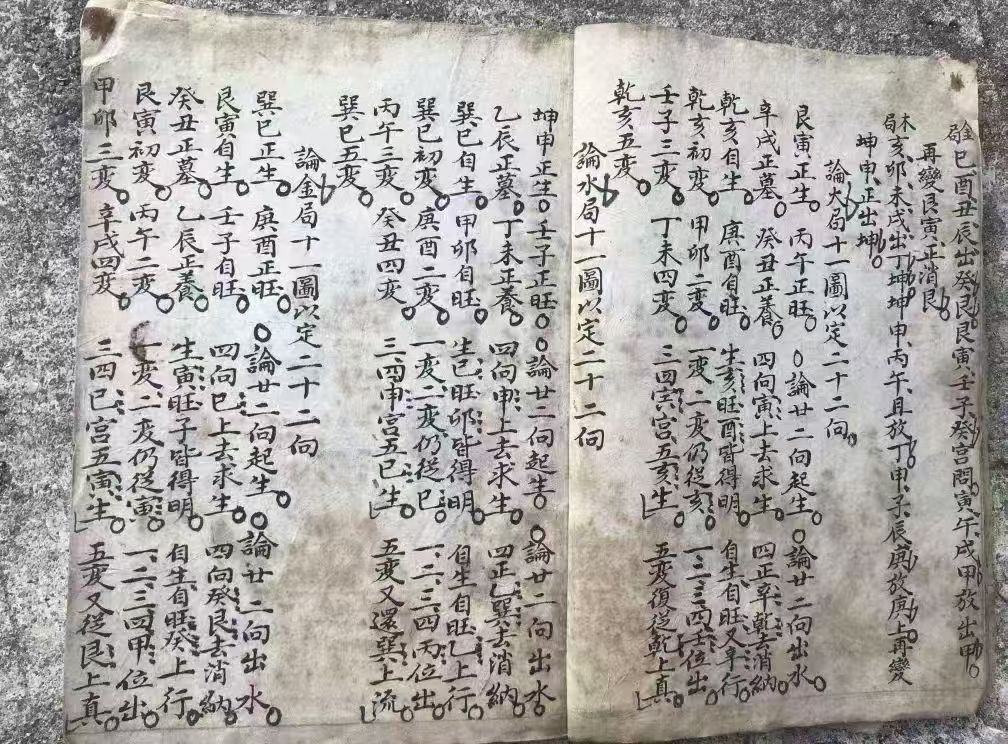 金局巳酉丑辰出癸艮艮寅壬子癸宮問寅午戌甲放出甲
再變艮寅正消艮
木局亥卯未戌出丁坤坤申丙午且放丁甲子辰庚放庚上再變
坤申正出坤
論火局十一圖以定二十二向
艮寅正生 丙午正旺 論廿二向起生 論廿二向出水
辛戌正墓 癸丑正養 四向寅上去求生 四正辛乾去消納
乾亥自生 庚酉自旺 生亥旺酉皆得明 自生自旺又辛行
乾亥初变 甲卯二变 一变二变仍從亥 一二三四壬位出
壬子三变 丁未四变 三四寅宮五亥生 五变復從乾上真
乾亥五变
論水局十一圖以定二十二向
坤申正生 壬子正旺 論廿二向起生 論廿二向出水
乙辰正墓 丁未正養 四向申上去求生 四正乙巽去消納
巽巳自生 甲卯自旺 生巳旺卯皆得明 自生自旺乙上行
巽巳初变 庚酉二变 一变二变仍從巳 一二三四丙位出
丙午三变 癸丑四变 三四申宮五巳生 五变又還巽上流
巽巳五变
論金局十一圖以定二十二向
巽巳正生 庚酉正旺 論廿二向起生 論廿二向出水
艮寅自生 壬子自旺 四向巳上去求生 四向癸艮去消納
癸丑正墓 乙辰正養 生寅旺子皆得明 自生自旺癸上行
艮寅初变 丙午二变 一变二变仍從寅 一二三四甲位出
甲卯三变 辛戌四变 三四巳宮五寅生 五变又從艮上真